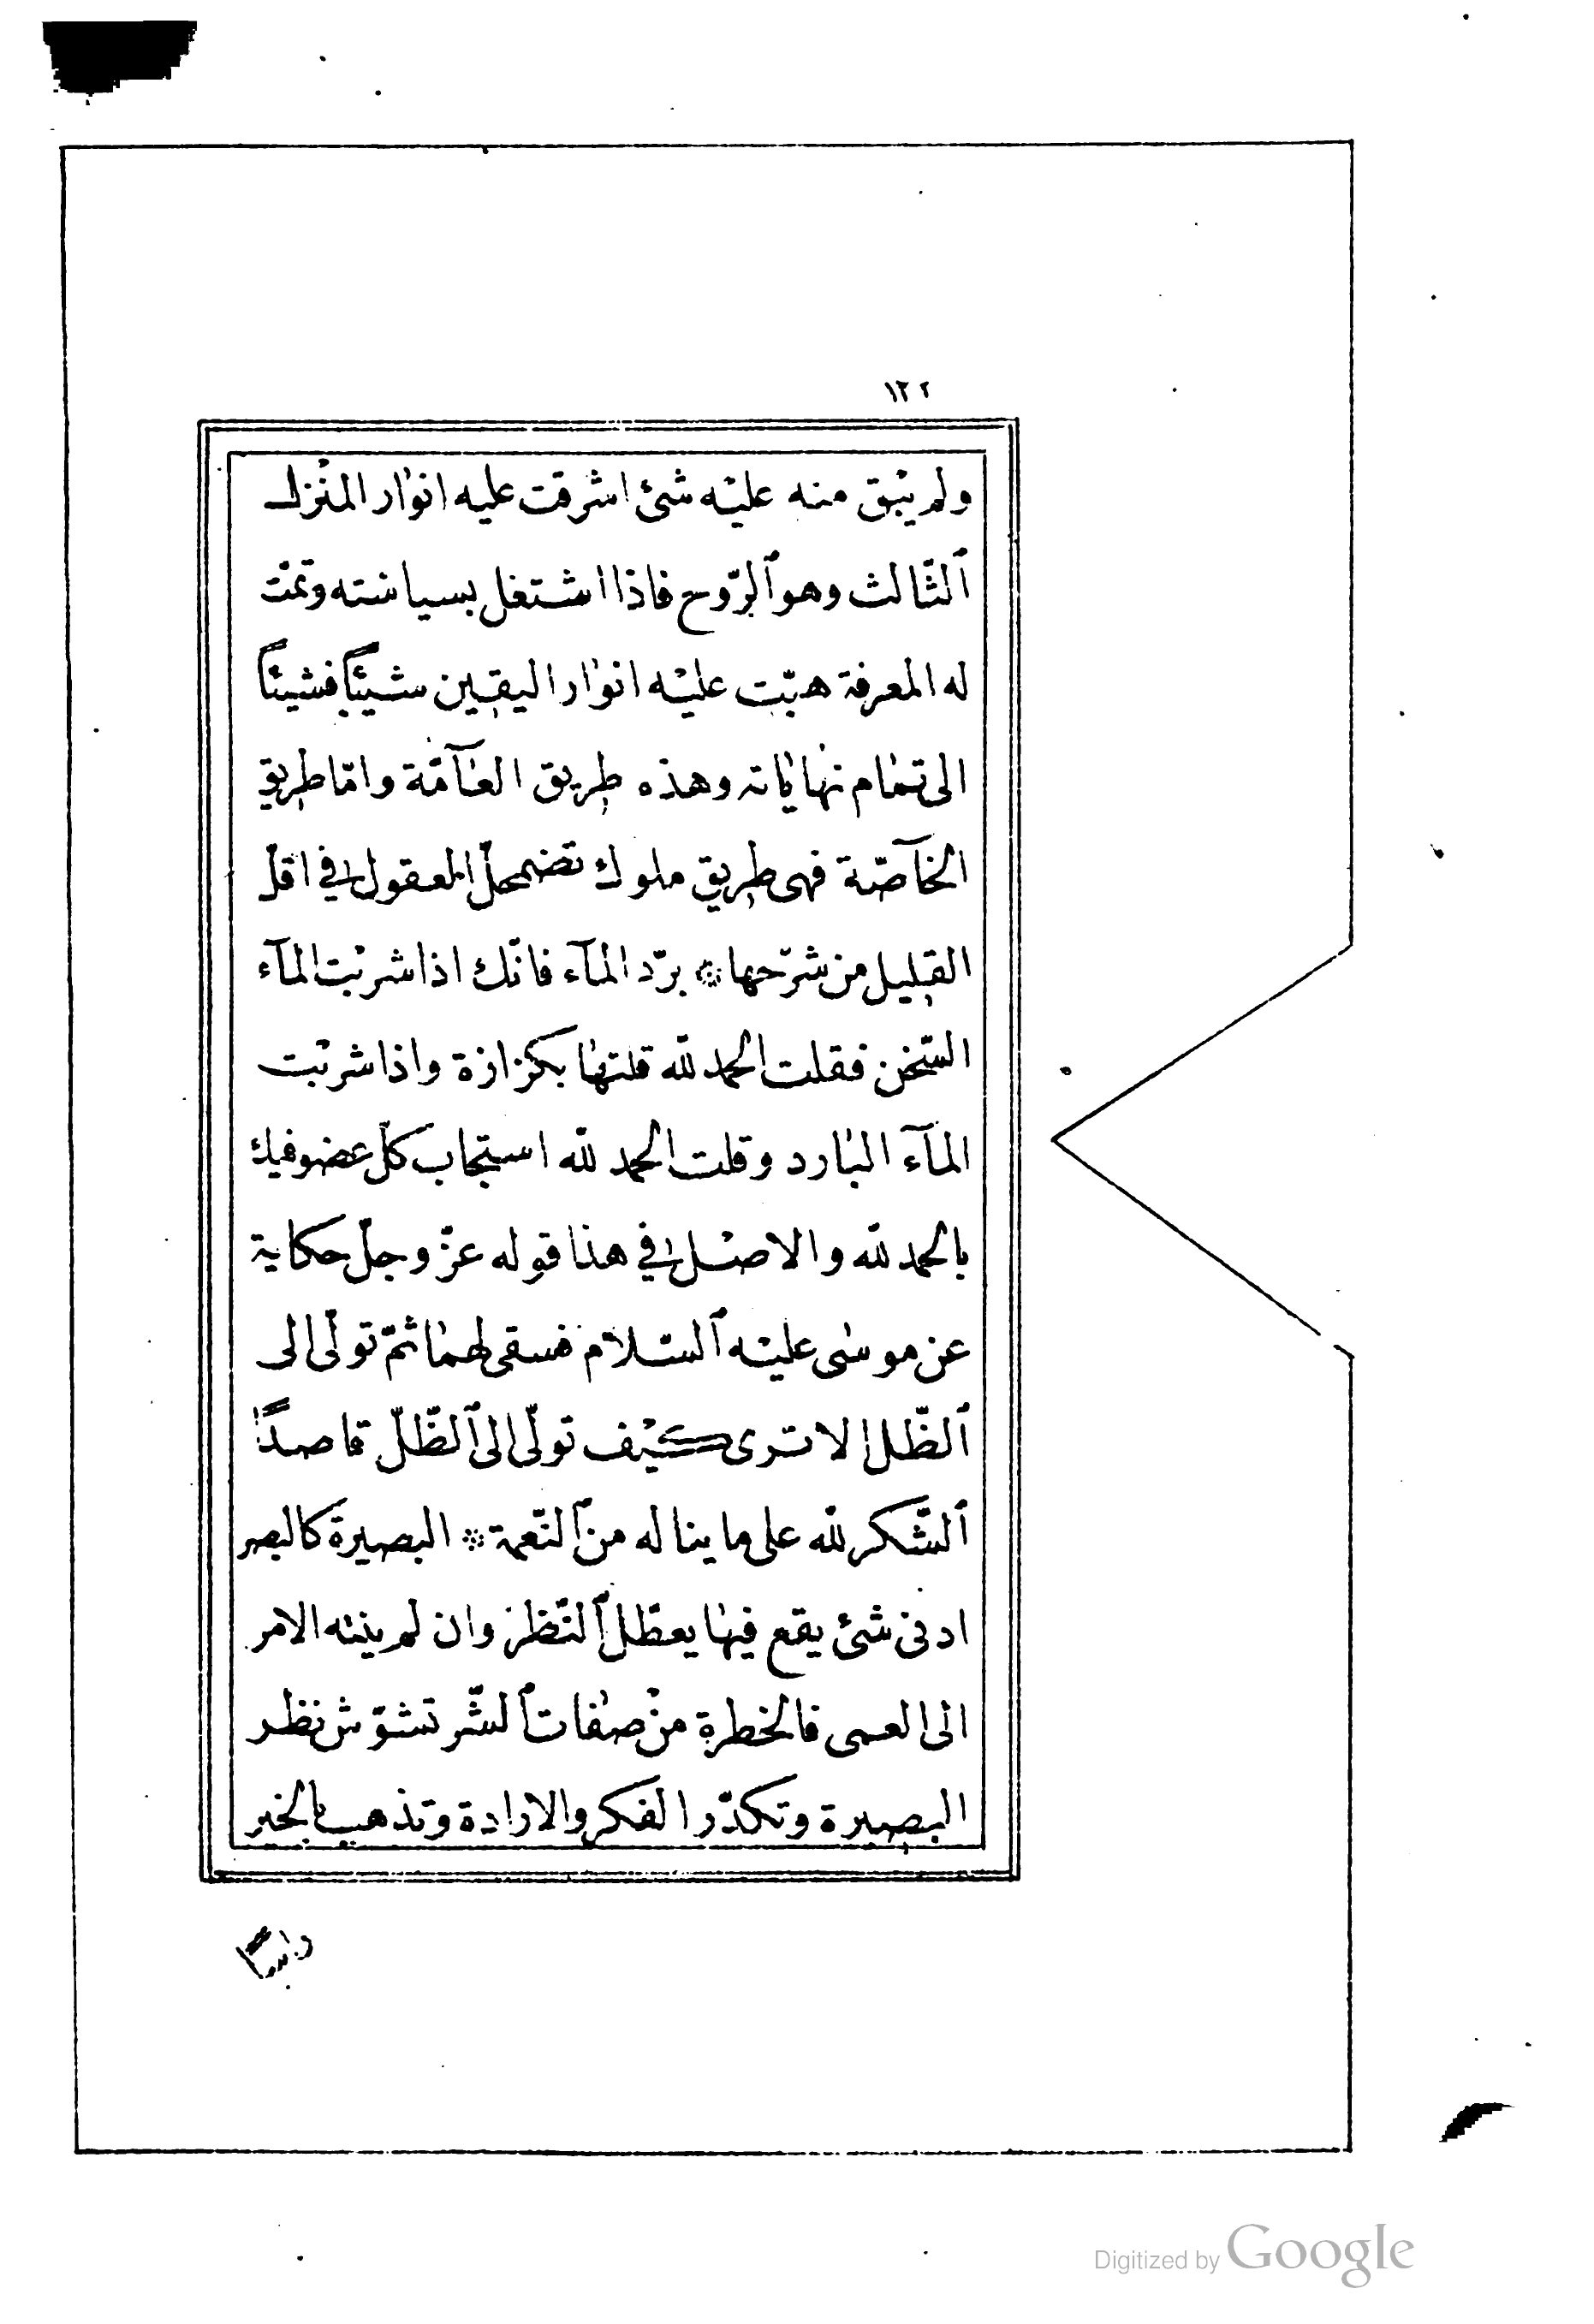 ١٢٢
ولم يبْق منه عليْه شئ اشرقت عليه انوٰار المنْزل
ٱلثّالث وهو ٱلرّوح فاذا اشتغل بسياسته وتمّت
له المعرفة هبّت عليْه انوٰار اليقين شيئًا فشيئًا
الى تمٰام نهٰايٰاته وهذه طريق العٰآمّة وامّا طريق
الخٰآصّة فهى طريق ملوك تضمحلّ العقول فى اقلّ
القليل من شرْحها ۞ برّد المآء فانّك اذا شربْت المآء
السّخن فقلت الحمد لله قلتهٰا بكزازة واذا شربْت
المآء البٰارد وقلت الحمد لله استجٰاب كلّ عضو فيك
بالحمد لله والاصْل فى هذا قوله عزّ وجلّ حكاية
عن موسٰى عليْه ٱلسّلام فسقى لهمٰا ثمّ تولّى الى
ٱلظّل الا ترى كيْف تولّى الى ٱلظّلّ قاصدًا
ٱلشّكر لله على ما يناله من ٱلنّعمة ۞ البصيرة كالبصر
ادنى شئ يقع فيهٰا يعطّل ٱلنّظر وان لم ينته الامر
الى العمى فالخطرة منْ صفٰات ٱلشّر تشوّش نظر
البصيرة وتكدّر الفكر والارادة وتذهب بالخير
رٰاسًا
Digitized by Google